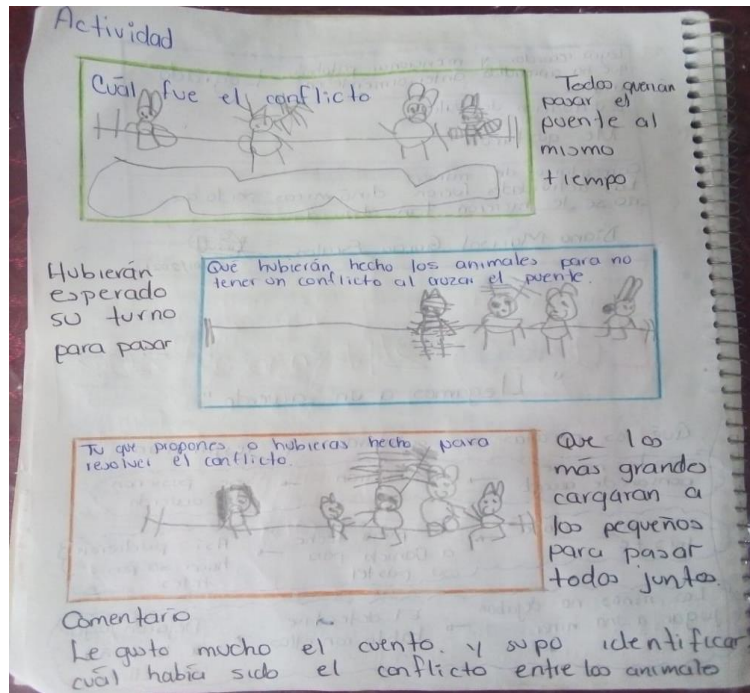 Actividad
Cuál fue el conflicto
Todos querian
pasar el
puente al
mismo
tiempo
Hubierán
esperado
su turno
para pasar
Qué hubierán hecho los animales para no
tener un conflicto al cruzar el puente.
Tu que propones o hubieras hecho para
resolver el conflicto.
Que los
más grandes
cargaran a
los pequeños
para pasar
todos juntos.
Comentario
Le gusto mucho el cuento. y supo identificar
cuál había sido el conflicto entre los animales